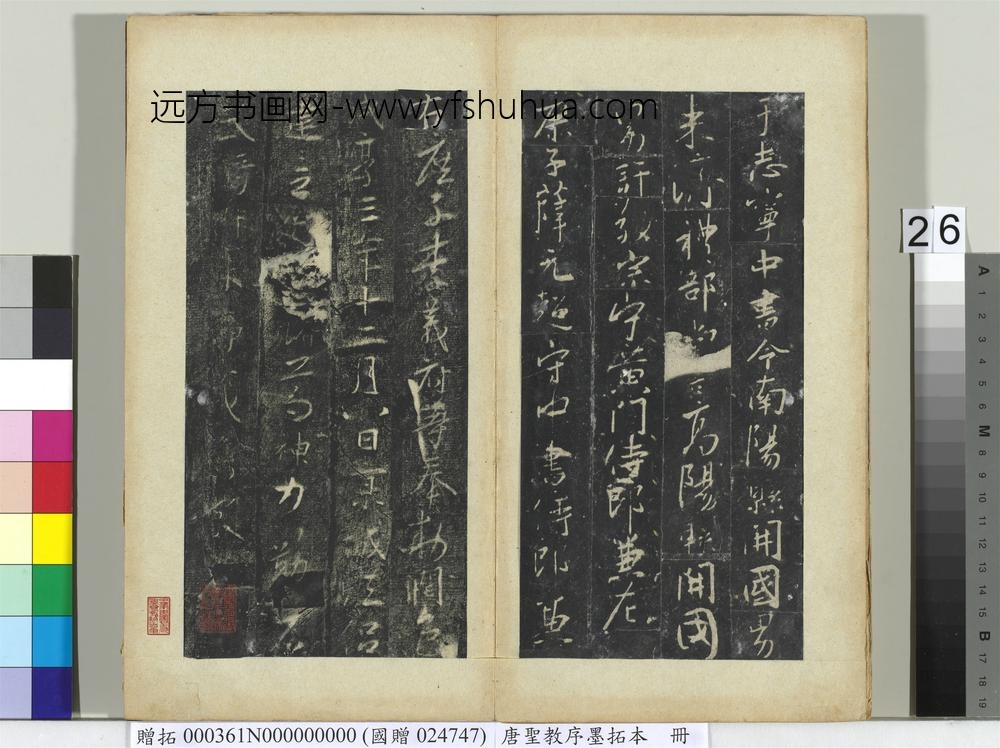 远方书画网-www.yfshuhua.com
于志寧中書令南陽縣開國男
来濟禮部尚書高陽縣開國
男許敬宗守黃門侍郎兼左
庶子薛元超守中書侍郎兼
右庶子李義府等奉敕潤色
咸亨三年十二月八日京城法侶
建立文郎諸葛神力勒石
武騎尉朱靜藏
26
A 1 2 3 4 5 6 M 8 9 10 11 12 13 14 15 B 17 18 19
贈拓 000361N000000000 (國贈 024747) 唐聖教序墨拓本 冊